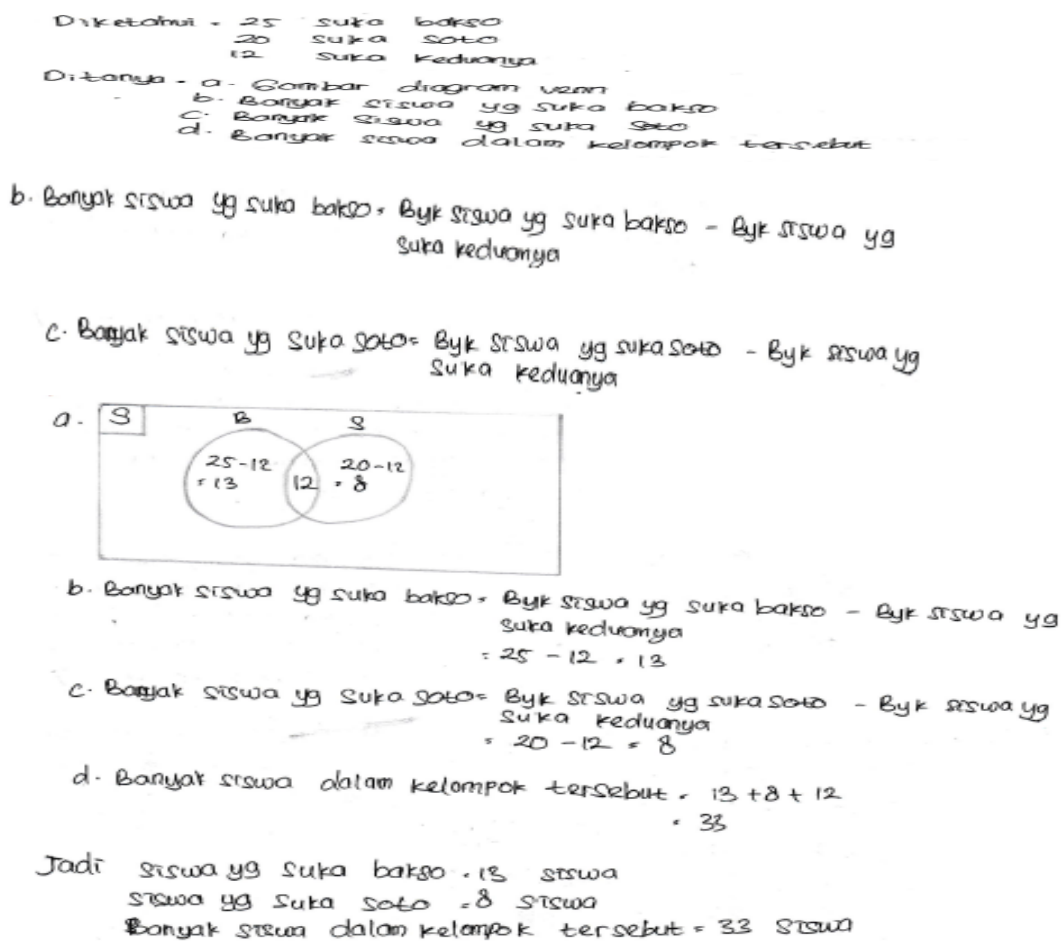 Diketahui = 25 suka bakso
20 suka soto
12 suka keduanya
Ditanya = a. Gambar diagram venn
b. Banyak siswa yg suka bakso
c. Banyak siswa yg suka soto
d. Banyak siswa dalam kelompok tersebut
b. Banyak siswa yg suka bakso = Byk siswa yg suka bakso - Byk siswa yg
suka keduanya
c. Banyak siswa yg suka soto = Byk siswa yg suka soto - Byk siswa yg
suka keduanya
a. S B S
25-12 20-12
= 13 12 = 8
b. Banyak siswa yg suka bakso = Byk siswa yg suka bakso - Byk siswa yg
suka keduanya
= 25 - 12 = 13
c. Banyak siswa yg suka soto = Byk siswa yg suka soto - Byk siswa yg
suka keduanya
= 20 - 12 = 8
d. Banyak siswa dalam kelompok tersebut = 13 + 8 + 12
= 33
Jadi siswa yg suka bakso = 13 siswa
siswa yg suka soto = 8 siswa
Banyak siswa dalam kelompok tersebut = 33 siswa